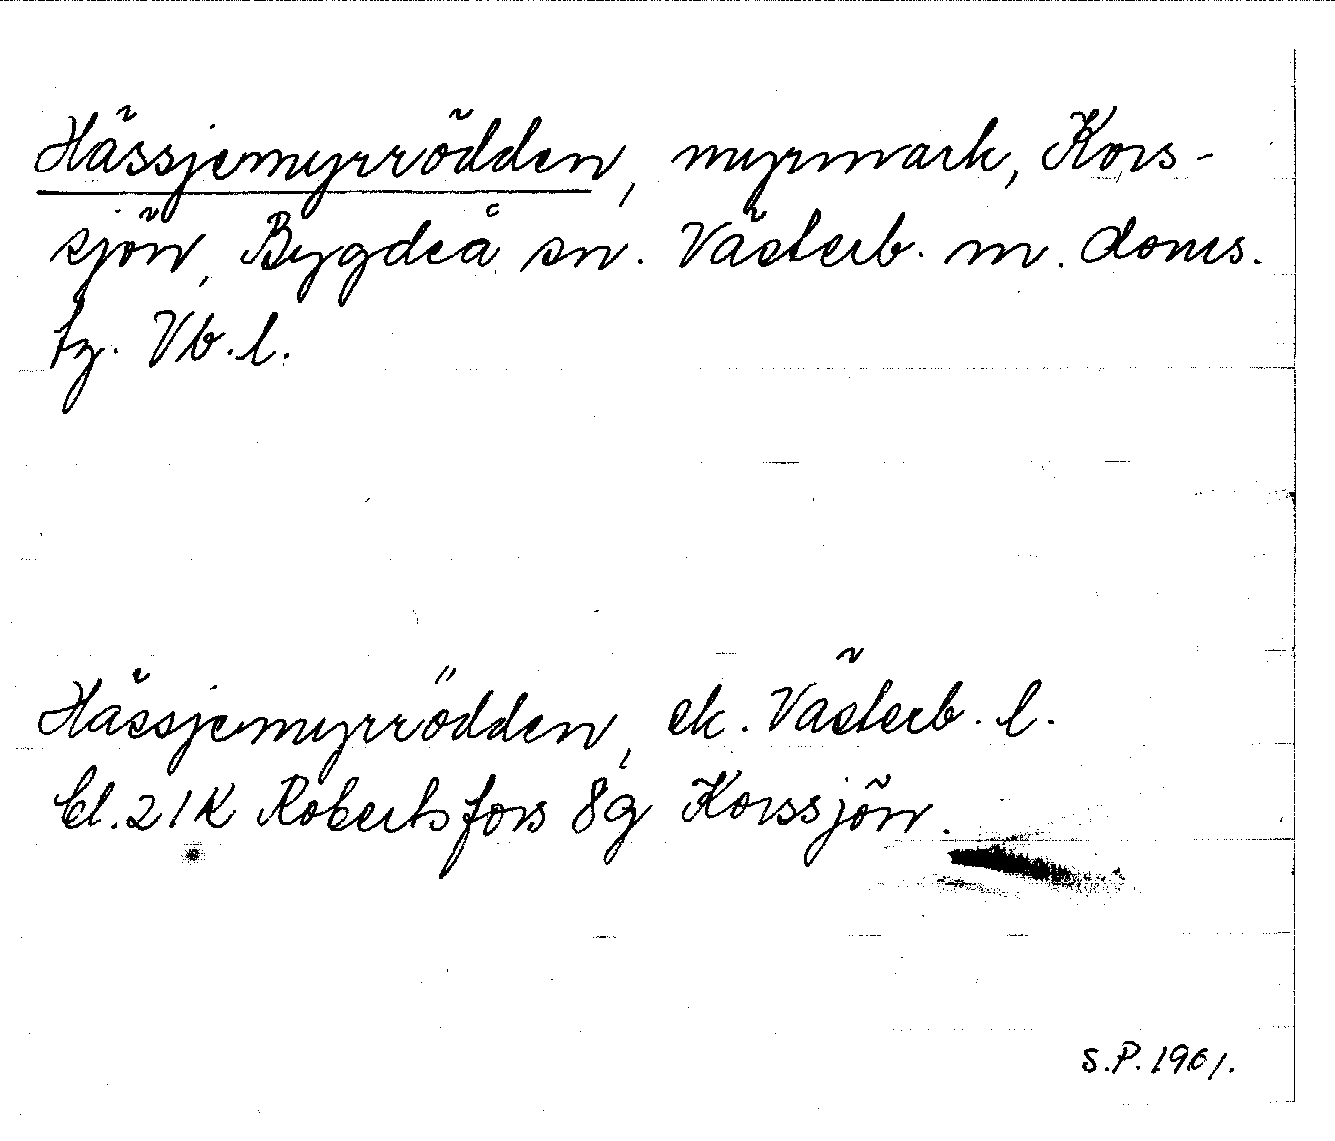 Hässjemyrrödden, myrmark, Kors-
sjön, Bygdeå sn. Västerb. m. doms.
tg. Vb.l.
Hässjemyrrödden, ek. Västerb. l.
bl. 21K Robertsfors 8g Korssjön.
S.P. 1961.